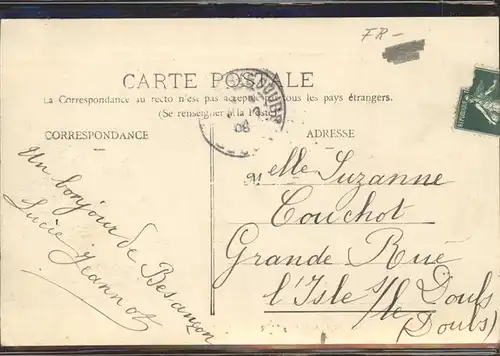 FR -
CARTE POSTALE
La Correspondance au recto n'est pas acceptée par tous les pays étrangers.
(Se renseigner à la Poste)
CORRESPONDANCE
ADRESSE
Un bonjour de Besançon
Lucie Jeannot
Melle Suzanne
Couchot
Grande Rue
l'Isle s/le Doubs
(Doubs)
08